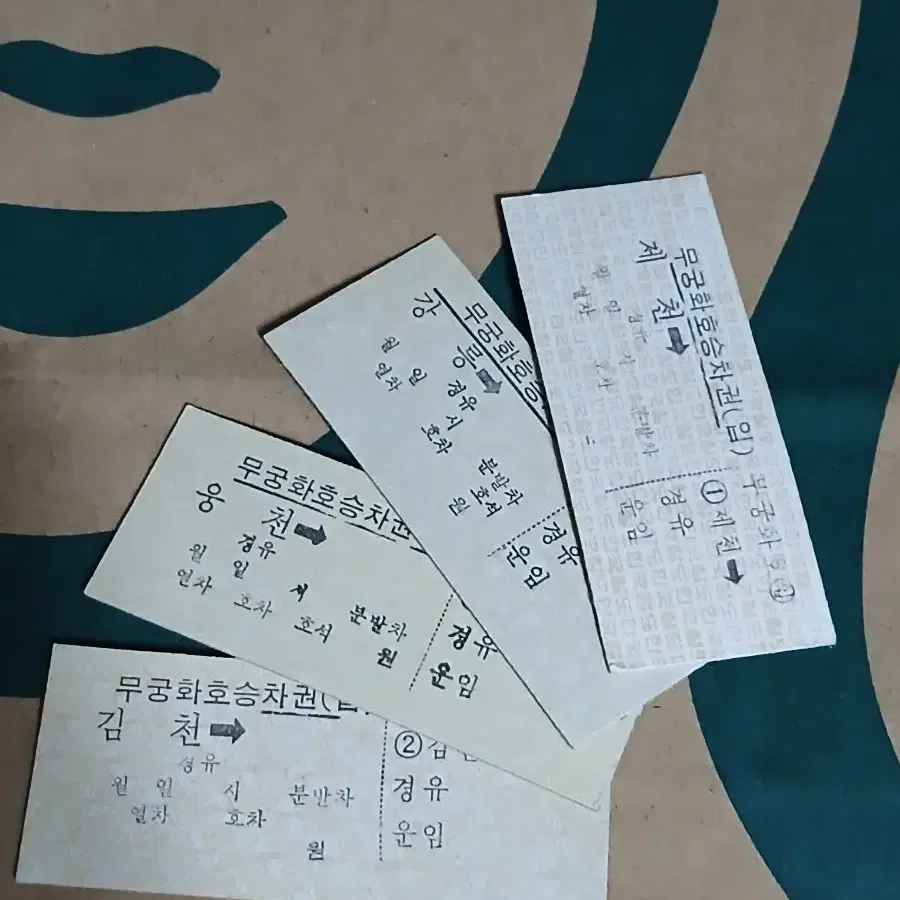 무궁화호승차권(입)
제 천 ➡
월 일 경유 시 분발차
열차 호차
무궁화
① 제천 ➡
경유
운임
무궁화호승
강 릉 ➡
경유
월 일 시 분발차
열차 호차 호석
원
경유
운임
무궁화호승차권
웅 천 ➡
경유
월 일 시 분발차
열차 호차 호석
원
경유
운임
무궁화호승차권(
김 천 ➡
경유
월 일 시 분발차
열차 호차
원
② 김천
경유
운임